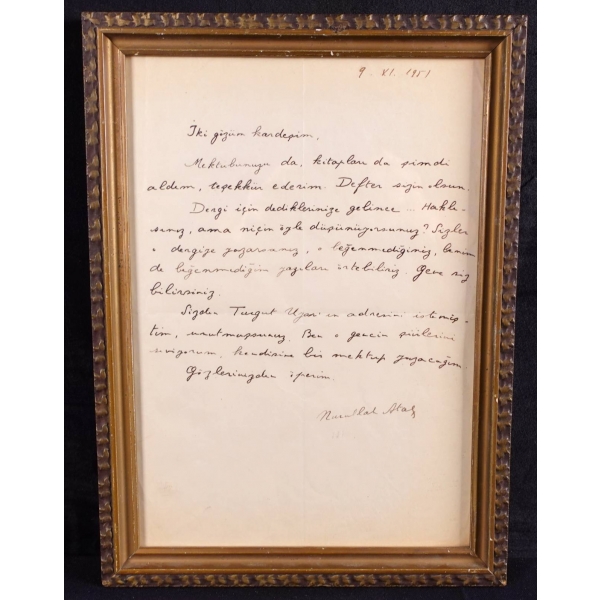 9. XI. 1951
İki gözüm kardeşim,
Mektubunuzu da, kitapları da şimdi
aldım, teşekkür ederim. Defter sizin olsun.
Dergi için dediklerinize gelince... Haklı-
sınız, ama niçin öyle düşünüyorsunuz? Sizler
o dergiye yazarsanız, o beğenmediğiniz, benim
de beğenmediğim yazıları örtebiliriz. Gene siz
bilirsiniz.
Sizden Turgut Uyar'ın adresini istemiş-
tim, unutmuşsunuz. Ben o gencin şiirlerini
seviyorum, kendisine bir mektup yazacağım.
Gözlerinizden öperim.
Nurullah Ataç